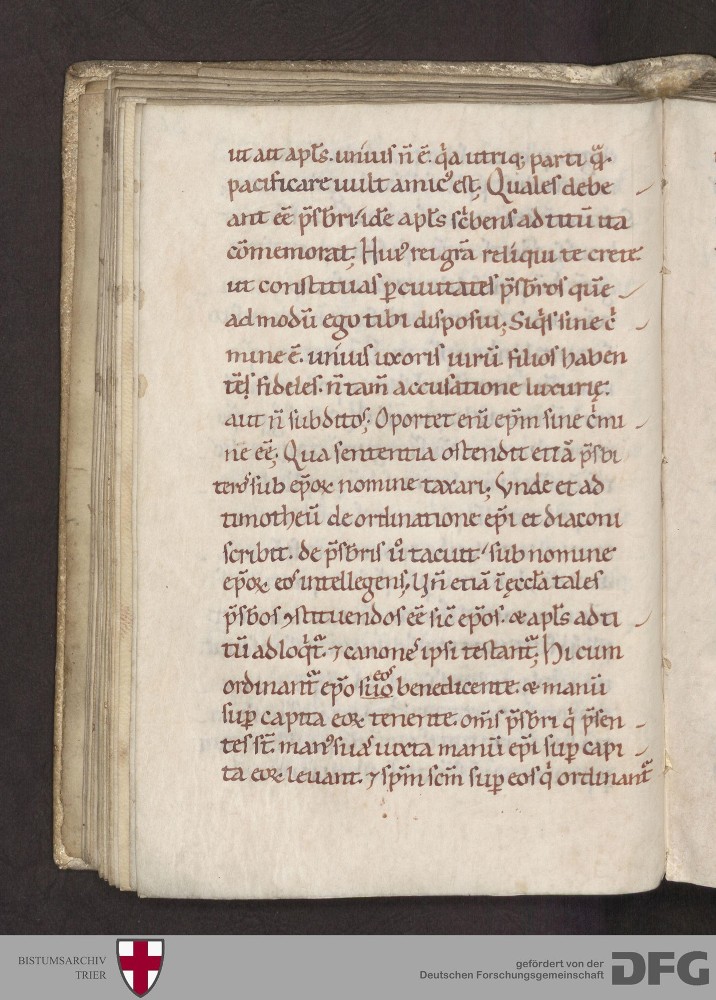 ut ait apl̄s. unius ñ ē. q̇a utriq; parti q̄.
pacificare uult amic᾿ est; Quales debe
ant eē p̄sb̄ri. idē apl̄s sc̄bens ad titū ita
cōmemorat; Hui᾿ rei gr̄a reliqui te crete.
ut constituas ꝑ ciuitates p̄sb̄ros quē
ad modū ego tibi disposui; Siq̇s sine c̓
mine ē. unius uxoris uirū filios haben
tēs fideles. ñ tam̄ accusatione luxurię.
aut ñ subditos; Oportet enī ep̄m sine c̓mi
ne eē; Qua sententia ostendit etiā p̄sbi
teros sub ep̄oꝝ nomine taxari; Vnde et ad
timotheū de ordinatione ep̄i et diaconi
scribit. de p̄sb̄ris u̓ tacuit. sub nomine
ep̄oꝝ eos intellegens; Uñ etiā ī ęccl̄a tales
p̄sb̄os ꝯstituendos eē sic̄ ep̄os. & apl̄s ad ti
tū adloq̇t᷑. ⁊ canones ipsi testant᷑; Hi cum
ordinant᷑ ep̄o suo eos benedicente. & manū
suꝑ capita eoꝝ tenente. om̄s p̄sb̄ri q̇ p̄sen
tes st̄. man᾿ suas iuxta manū ep̄i suꝑ capi
ta eoꝝ leuant. ⁊ sp̄m sc̄m suꝑ eos q̇ ordinant᷑
BISTUMSARCHIV
TRIER
gefördert von der
Deutschen Forschungsgemeinschaft
DFG